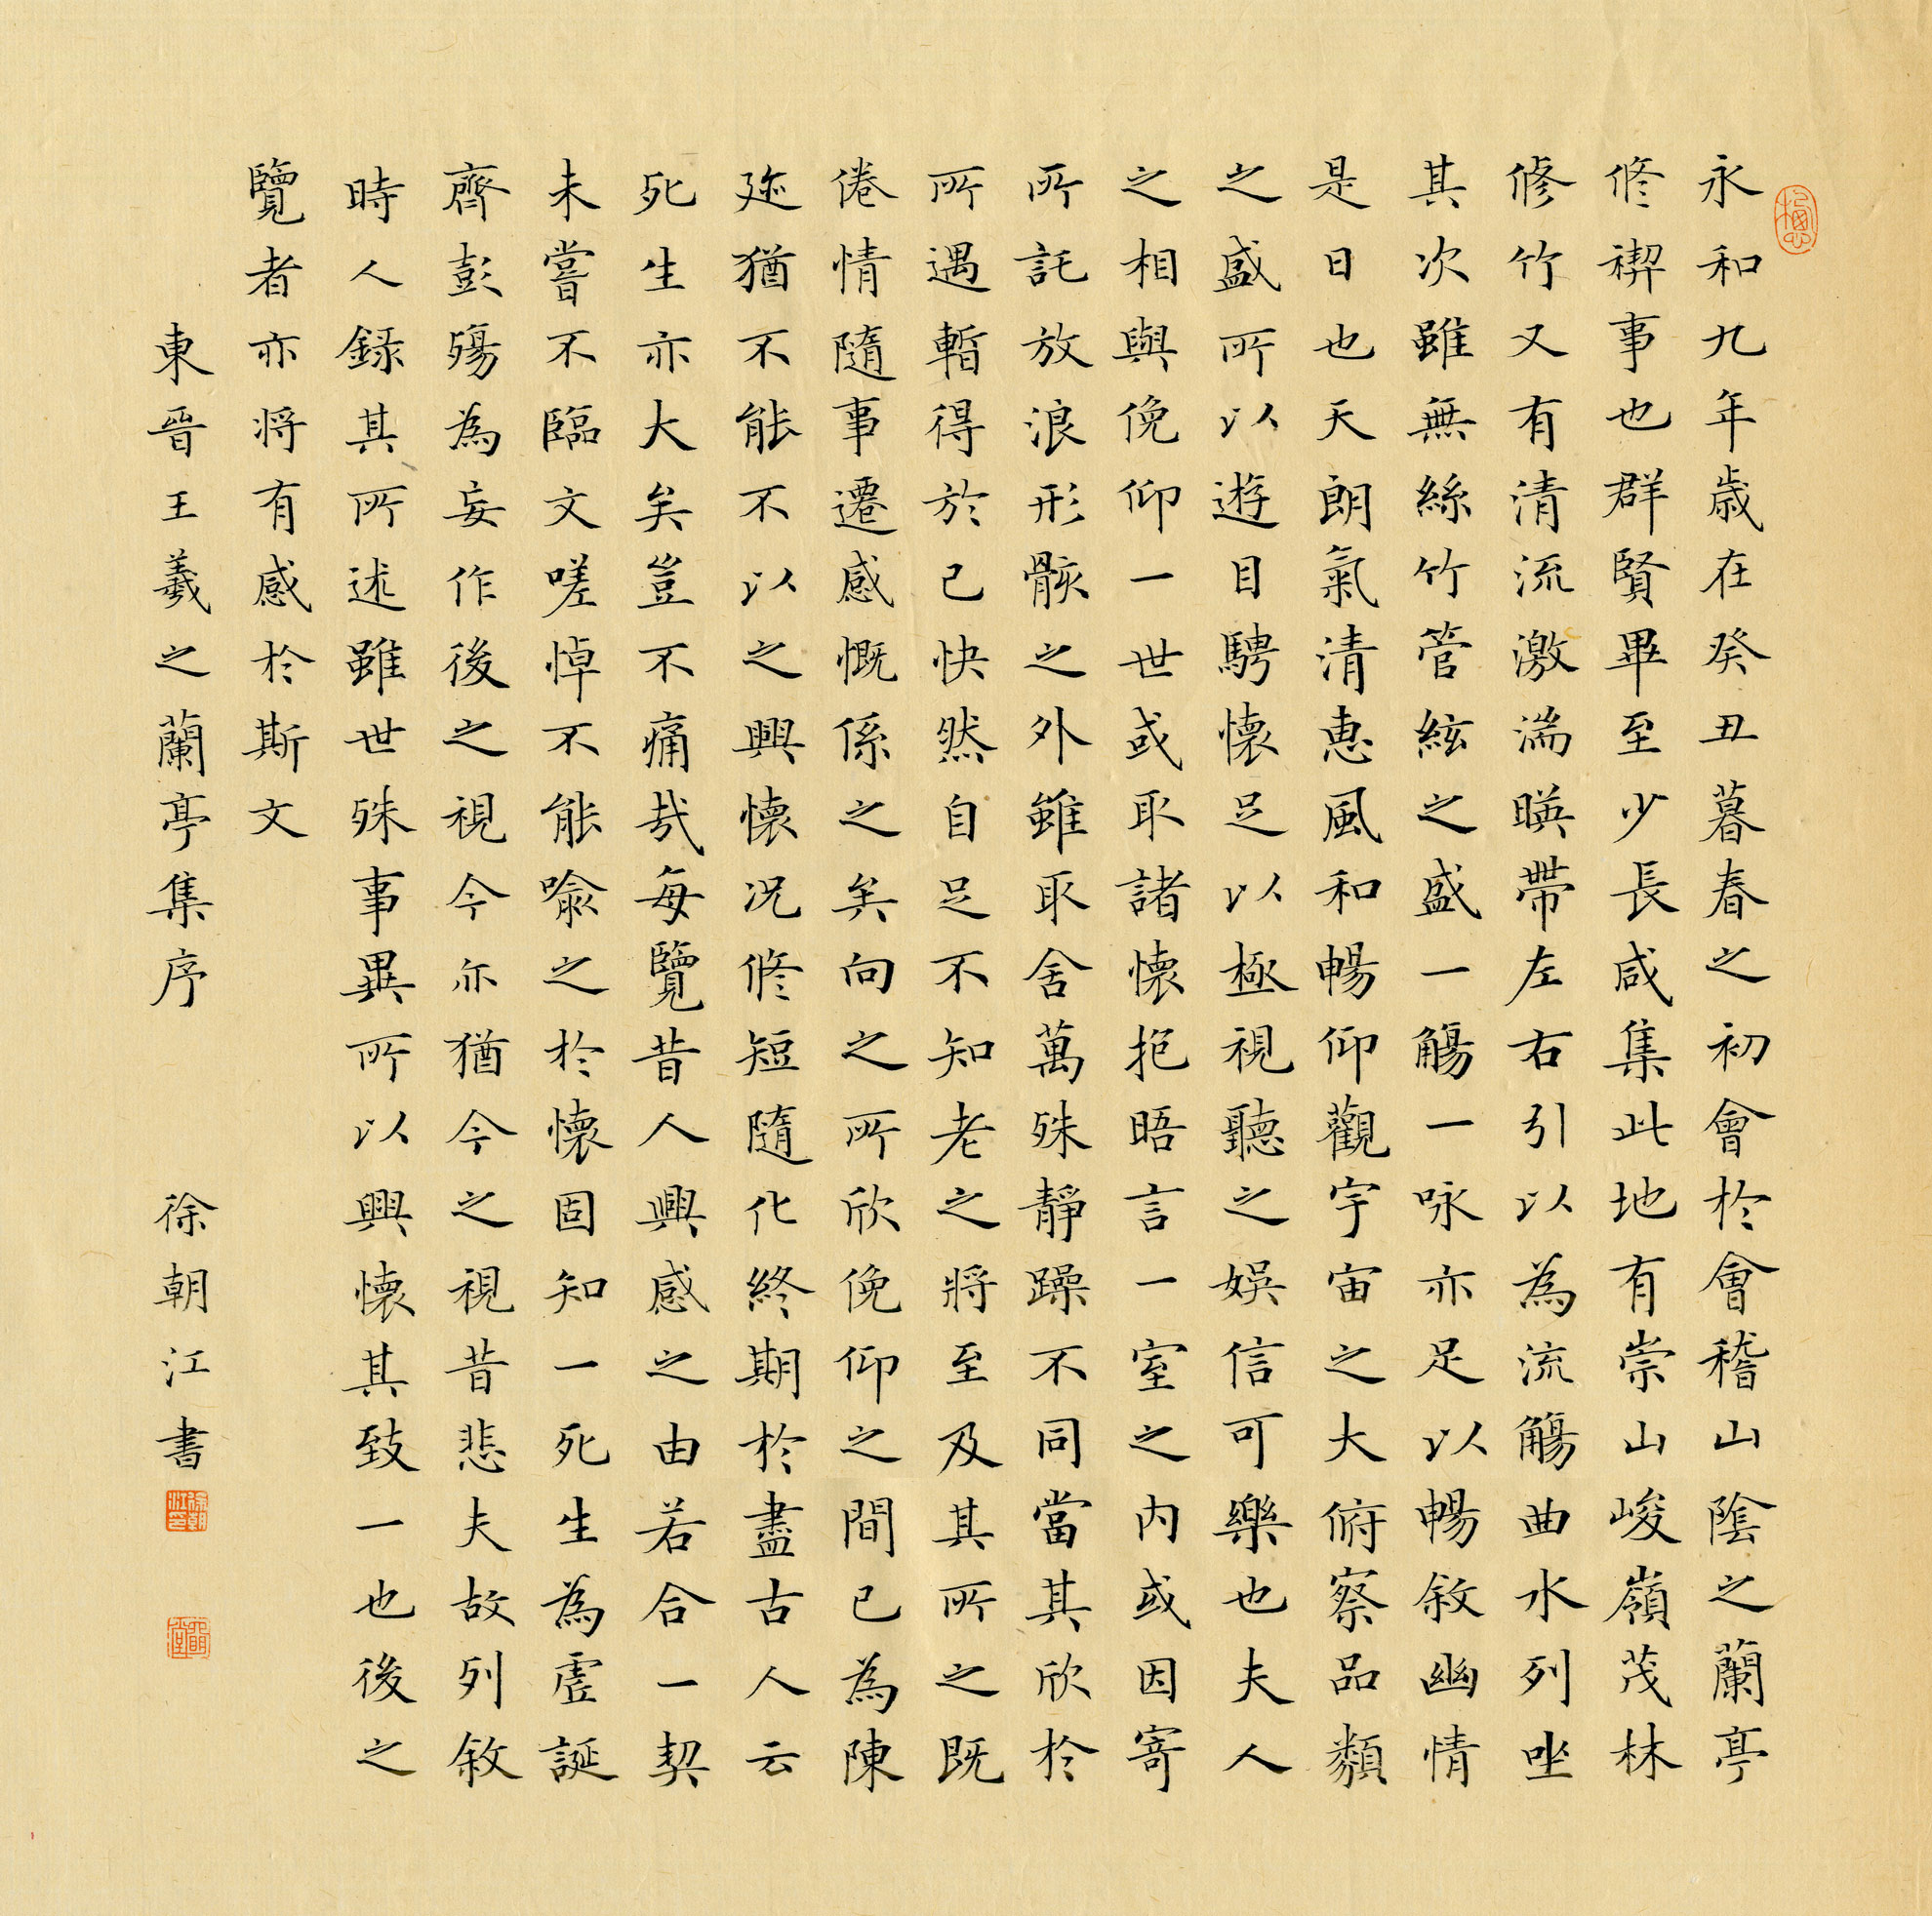 永和九年歲在癸丑暮春之初會於會稽山陰之蘭亭
脩禊事也群賢畢至少長咸集此地有崇山峻嶺茂林
修竹又有清流激湍暎帶左右引以為流觴曲水列坐
其次雖無絲竹管絃之盛一觴一咏亦足以暢敘幽情
是日也天朗氣清惠風和暢仰觀宇宙之大俯察品類
之盛所以遊目騁懷足以極視聽之娛信可樂也夫人
之相與俛仰一世或取諸懷抱晤言一室之內或因寄
所託放浪形骸之外雖取舍萬殊靜躁不同當其欣於
所遇暫得於己快然自足不知老之將至及其所之既
倦情隨事遷感慨係之矣向之所欣俛仰之間已為陳
迹猶不能不以之興懷況脩短隨化終期於盡古人云
死生亦大矣豈不痛哉每覽昔人興感之由若合一契
未嘗不臨文嗟悼不能喻之於懷固知一死生為虛誕
齊彭殤為妄作後之視今亦猶今之視昔悲夫故列敘
時人録其所述雖世殊事異所以興懷其致一也後之
覽者亦将有感於斯文
東晉王羲之蘭亭集序 徐朝江書
徐朝江印